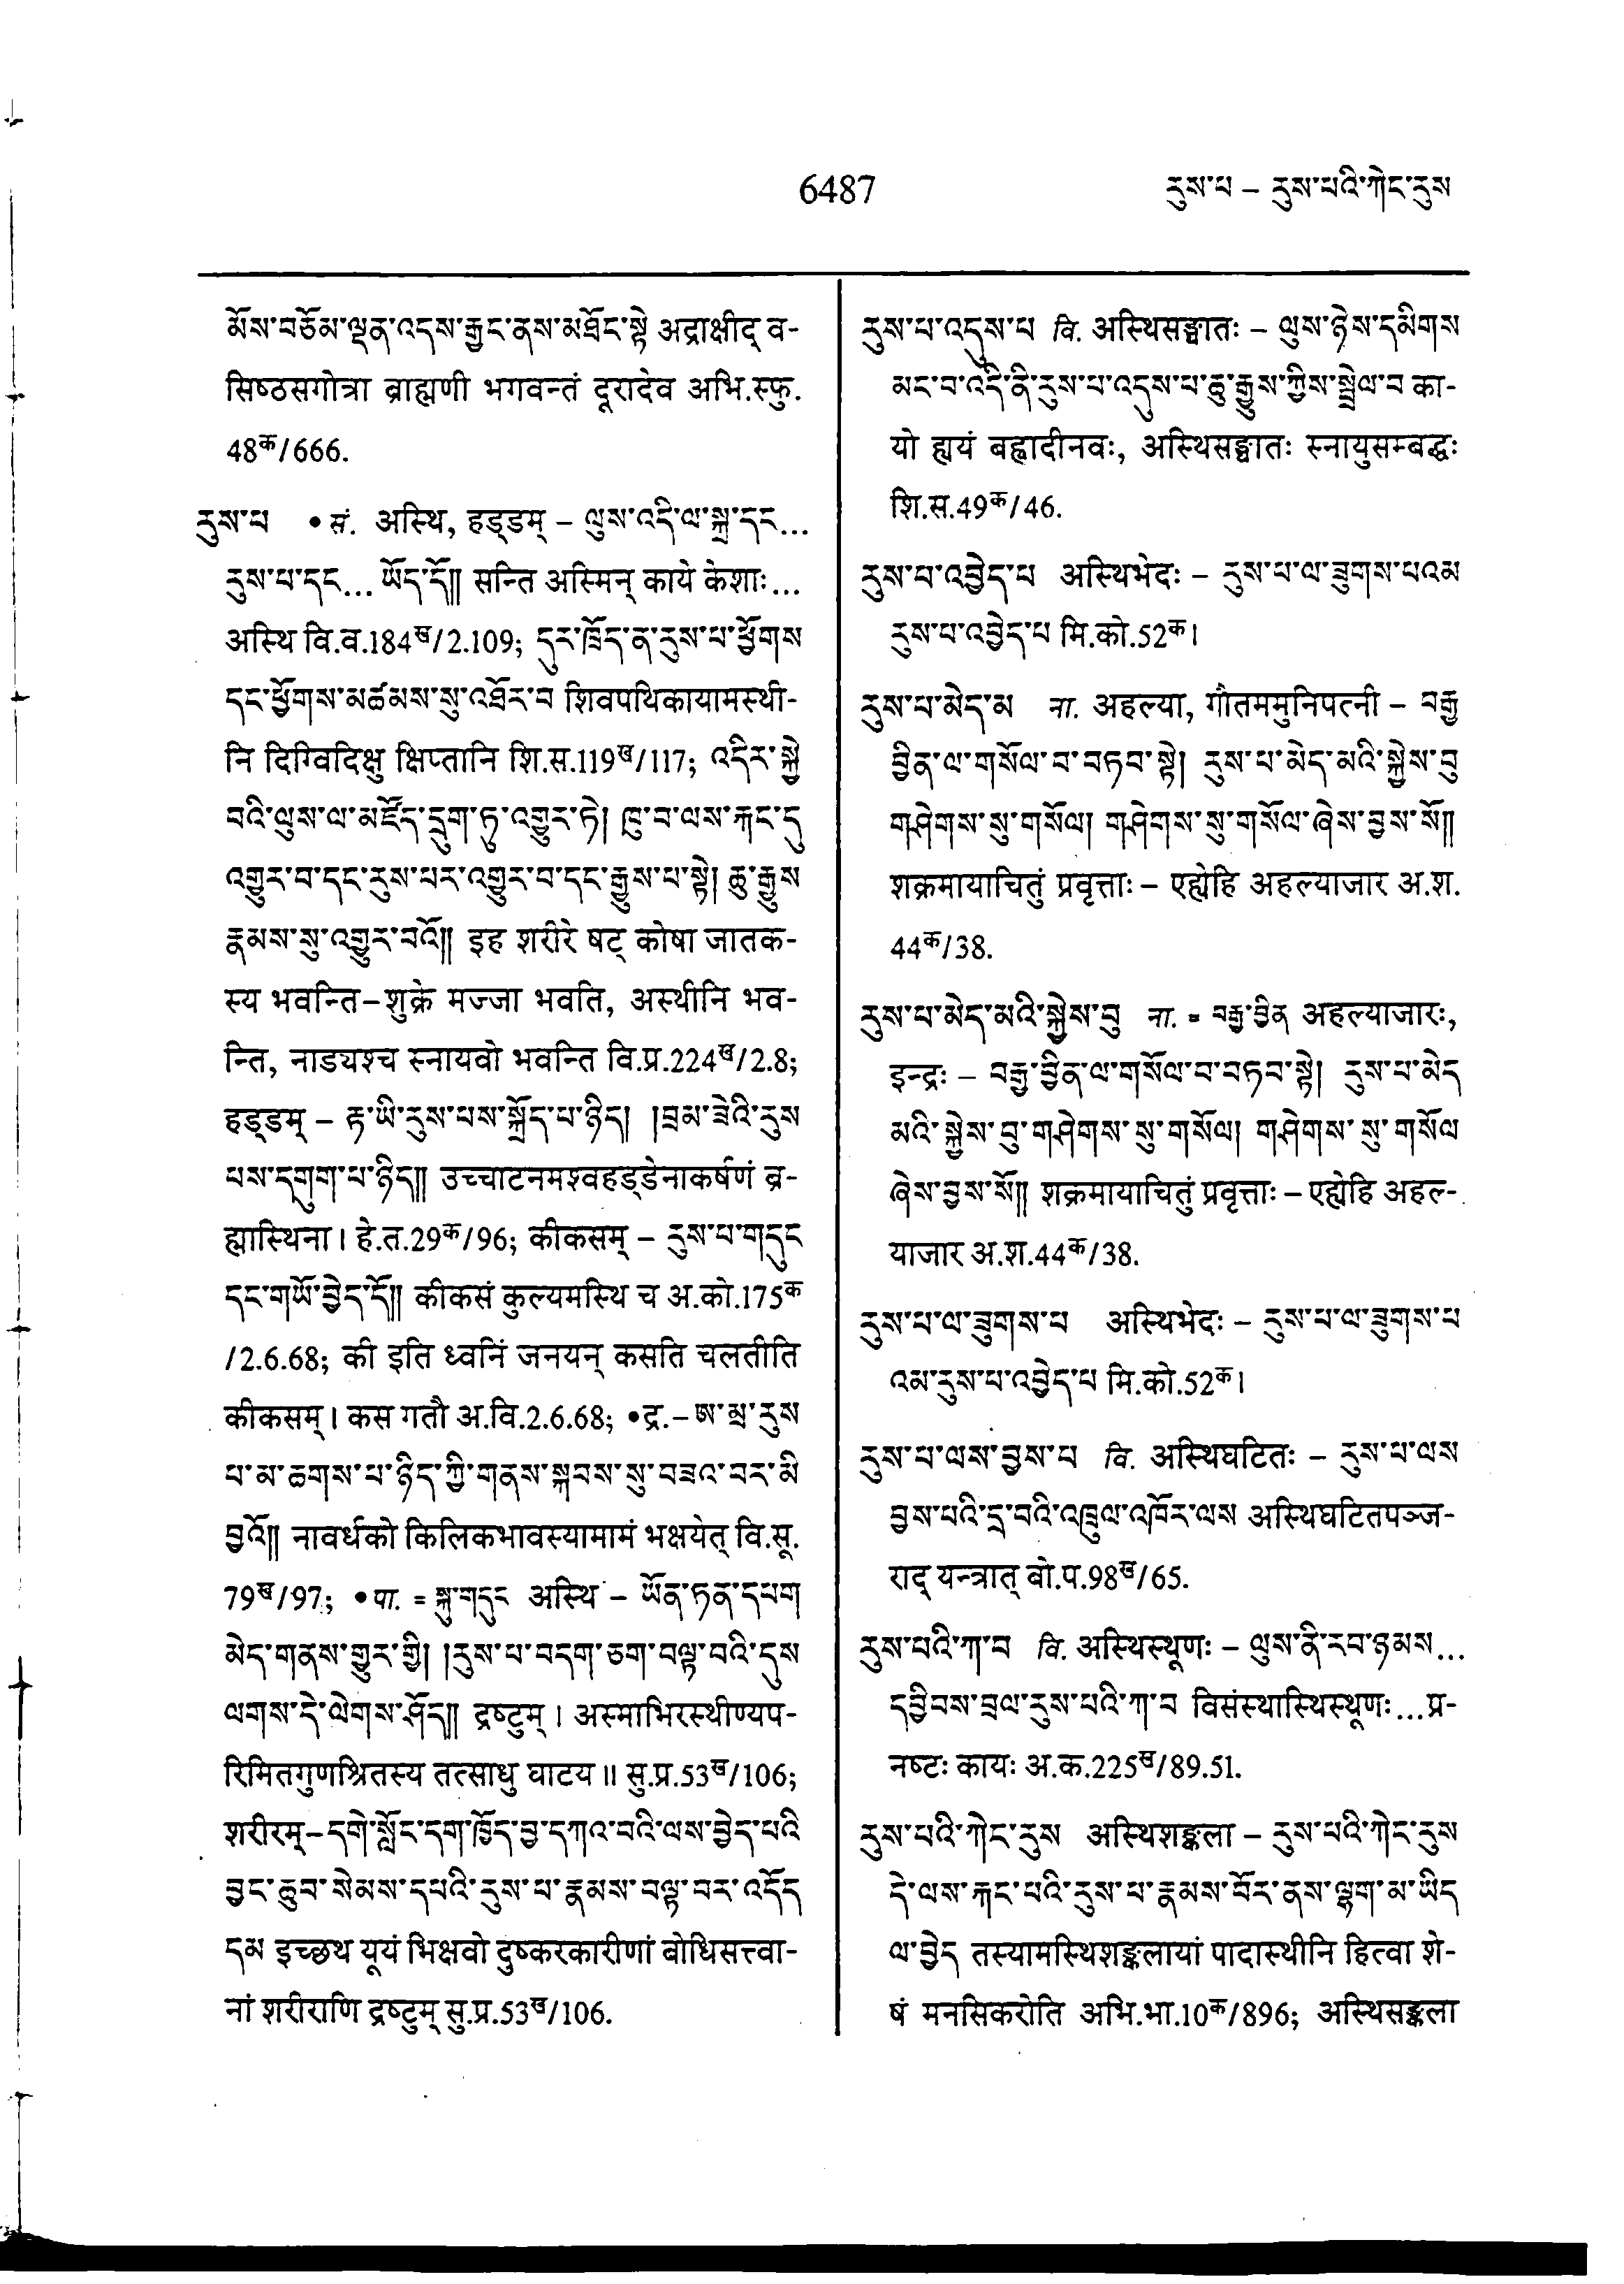 6487
རུས་པ – རུས་པའི་ཀེང་རུས
མོས་བཅོམ་ལྡན་འདས་རྒྱང་ནས་མཐོང་སྟེ अद्राक्षीद् व-
सिष्ठसगोत्रा ब्राह्मणी भगवन्तं दूरादेव अभि.स्फु.
48क/666.
རུས་པ • सं. अस्थि, हड्डम् – ལུས་འདི་ལ་སྐྲ་དང...
རུས་པ་དང... ཡོད་དོ།། सन्ति अस्मिन् काये केशाः...
अस्थि वि.व.184ख/2.109; དུར་ཁྲོད་ན་རུས་པ་ཕྱོགས
དང་ཕྱོགས་མཚམས་སུ་འཐོར་བ शिवपथिकायामस्थी-
नि दिग्विदिक्षु क्षिप्तानि शि.स.119ख/117; འདིར་སྐྱེ
བའི་ལུས་ལ་མཛོད་དྲུག་ཏུ་འགྱུར་ཏེ། ཁུ་བ་ལས་རྐང་དུ
འགྱུར་བ་དང་རུས་པར་འགྱུར་བ་དང་རྒྱུས་པ་སྟེ། ཆུ་རྒྱུས
རྣམས་སུ་འགྱུར་བའོ།། इह शरीरे षट् कोषा जातक-
स्य भवन्ति–शुक्रे मज्जा भवति, अस्थीनि भव-
न्ति, नाड्यश्च स्नायवो भवन्ति वि.प्र.224ख/2.8;
हड्डम् – རྟ་ཡི་རུས་པས་སྐྲོད་པ་ཉིད། །བྲམ་ཟེའི་རུས
པས་དགུག་པ་ཉིད།། उच्चाटनमश्वहड्डेनाकर्षणं ब्र-
ह्मास्थिना। हे.त.29क/96; कीकसम् – རུས་པ་གདུང
དང་གཡོ་བྱེད་དོ།། कीकसं कुल्यमस्थि च अ.को.175क
/2.6.68; की इति ध्वनिं जनयन् कसति चलतीति
कीकसम्। कस गतौ अ.वि.2.6.68; •द्र.– ཨ་མྲ་རུས
པ་མ་ཆགས་པ་ཉིད་ཀྱི་གནས་སྐབས་སུ་བཟའ་བར་མི
བྱའོ།། नावर्धको किलिकभावस्यामामं भक्षयेत् वि.सू.
79ख/97; •पा. = སྐུ་གདུང अस्थि – ཡོན་ཏན་དཔག
མེད་གནས་གྱུར་གྱི། །རུས་པ་བདག་ཅག་བལྟ་བའི་དུས
ལགས་དེ་ལེགས་ཤོད།། द्रष्टुम्। अस्माभिरस्थीण्यप-
रिमितगुणश्रितस्य तत्साधु घाटय॥ सु.प्र.53ख/106;
शरीरम्–དགེ་སློང་དག་ཁྱོད་བྱ་དཀའ་བའི་ལས་བྱེད་པའི
བྱང་ཆུབ་སེམས་དཔའི་རུས་པ་རྣམས་བལྟ་བར་འདོད
དམ इच्छथ यूयं भिक्षवो दुष्करकारीणां बोधिसत्त्वा-
नां शरीराणि द्रष्टुम् सु.प्र.53ख/106.
རུས་པ་འདུས་པ वि. अस्थिसङ्घातः – ལུས་ཉེས་དམིགས
མང་བ་འདི་ནི་རུས་པ་འདུས་པ་ཆུ་རྒྱུས་ཀྱིས་སྦྲེལ་བ का-
यो ह्ययं बह्वादीनवः, अस्थिसङ्घातः स्नायुसम्बद्धः
शि.स.49क/46.
རུས་པ་འབྱེད་པ अस्थिभेदः – རུས་པ་ལ་ཟུགས་པའམ
རུས་པ་འབྱེད་པ मि.को.52क।
རུས་པ་མེད་མ ना. अहल्या, गौतममुनिपत्नी – བརྒྱ
བྱིན་ལ་གསོལ་བ་བཏབ་སྟེ། རུས་པ་མེད་མའི་སྐྱེས་བུ
གཤེགས་སུ་གསོལ། གཤེགས་སུ་གསོལ་ཞེས་བྱས་སོ།།
शक्रमायाचितुं प्रवृत्ताः – एह्येहि अहल्याजार अ.श.
44क/38.
རུས་པ་མེད་མའི་སྐྱེས་བུ ना. = བརྒྱ་བྱིན अहल्याजारः,
इन्द्रः – བརྒྱ་བྱིན་ལ་གསོལ་བ་བཏབ་སྟེ། རུས་པ་མེད
མའི་སྐྱེས་བུ་གཤེགས་སུ་གསོལ། གཤེགས་སུ་གསོལ
ཞེས་བྱས་སོ།། शक्रमायाचितुं प्रवृत्ताः – एह्येहि अहल-
याजार अ.श.44क/38.
རུས་པ་ལ་ཟུགས་པ अस्थिभेदः – རུས་པ་ལ་ཟུགས་པ
འམ་རུས་པ་འབྱེད་པ मि.को.52क।
རུས་པ་ལས་བྱས་པ वि. अस्थिघटितः – རུས་པ་ལས
བྱས་པའི་དྲ་བའི་འཁྲུལ་འཁོར་ལས अस्थिघटितपञ्ज-
राद् यन्त्रात् बो.प.98ख/65.
རུས་པའི་ཀ་བ वि. अस्थिस्थूणः – ལུས་ནི་རབ་ཉམས...
དབྱིབས་བྲལ་རུས་པའི་ཀ་བ विसंस्थास्थिस्थूणः...प्र-
नष्टः कायः अ.क.225ख/89.51.
རུས་པའི་ཀེང་རུས अस्थिशङ्कला – རུས་པའི་ཀེང་རུས
དེ་ལས་རྐང་པའི་རུས་པ་རྣམས་བོར་ནས་ལྷག་མ་ཡིད
ལ་བྱེད तस्यामस्थिशङ्कलायां पादास्थीनि हित्वा शे-
षं मनसिकरोति अभि.भा.10क/896; अस्थिसङ्कला